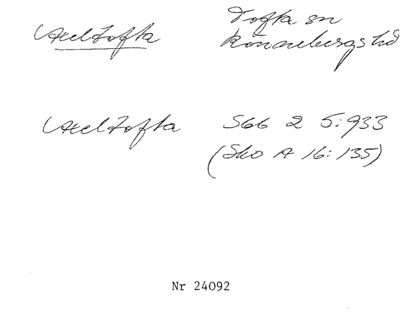 Axeltofta Tofta sn
Rönnebergs hd
Axeltofta SGG 2 5:933
(Sko A 16:135)
Nr 24092